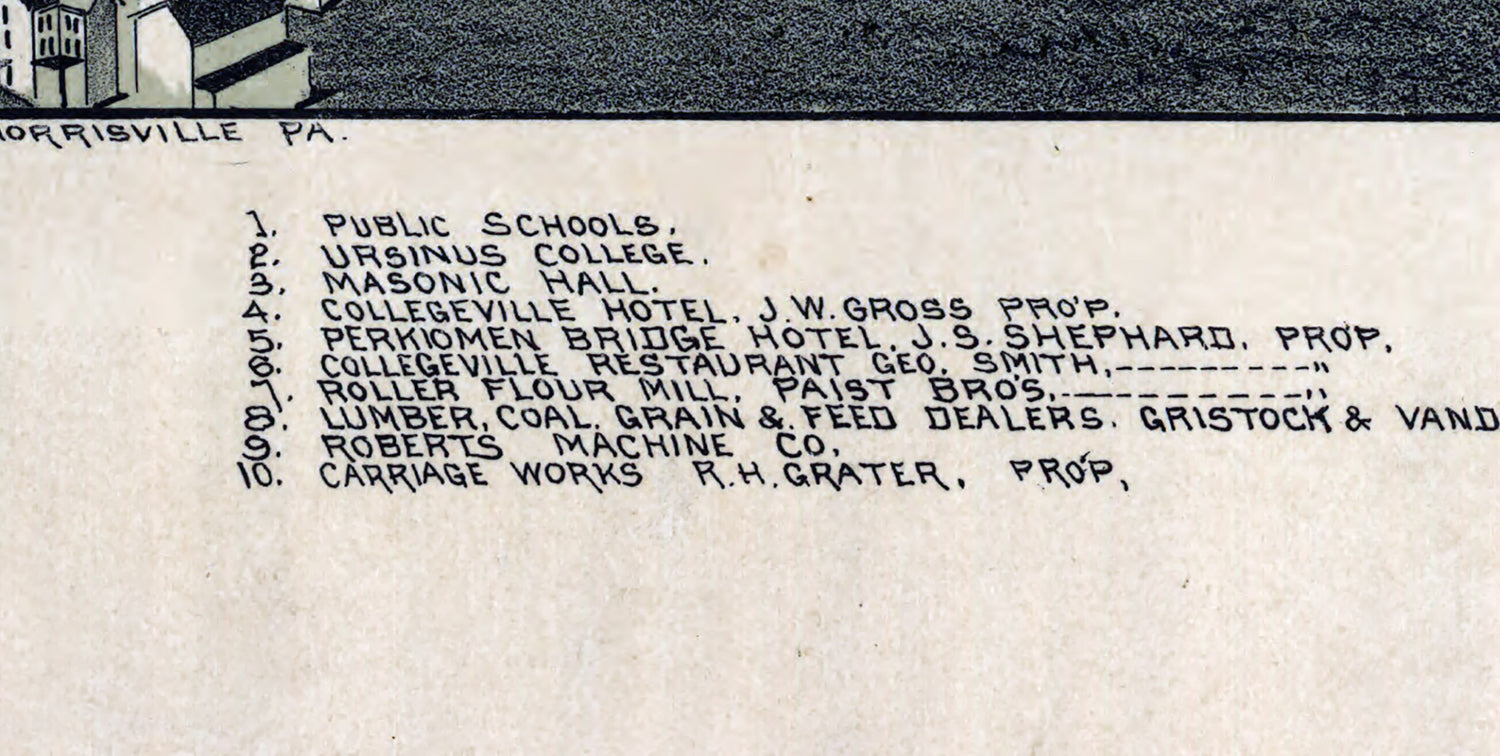 MORRISVILLE PA.
1. PUBLIC SCHOOLS.
2. URSINUS COLLEGE.
3. MASONIC HALL.
4. COLLEGEVILLE HOTEL, J.W. GROSS PRO'P.
5. PERKIOMEN BRIDGE HOTEL, J.S. SHEPHARD, PROP.
6. COLLEGEVILLE RESTAURANT GEO. SMITH,---------"
7. ROLLER FLOUR MILL, PAIST BRO'S,----------"
8. LUMBER, COAL, GRAIN & FEED DEALERS. GRISTOCK & VAND
9. ROBERTS MACHINE CO,
10. CARRIAGE WORKS R.H. GRATER, PRO'P,